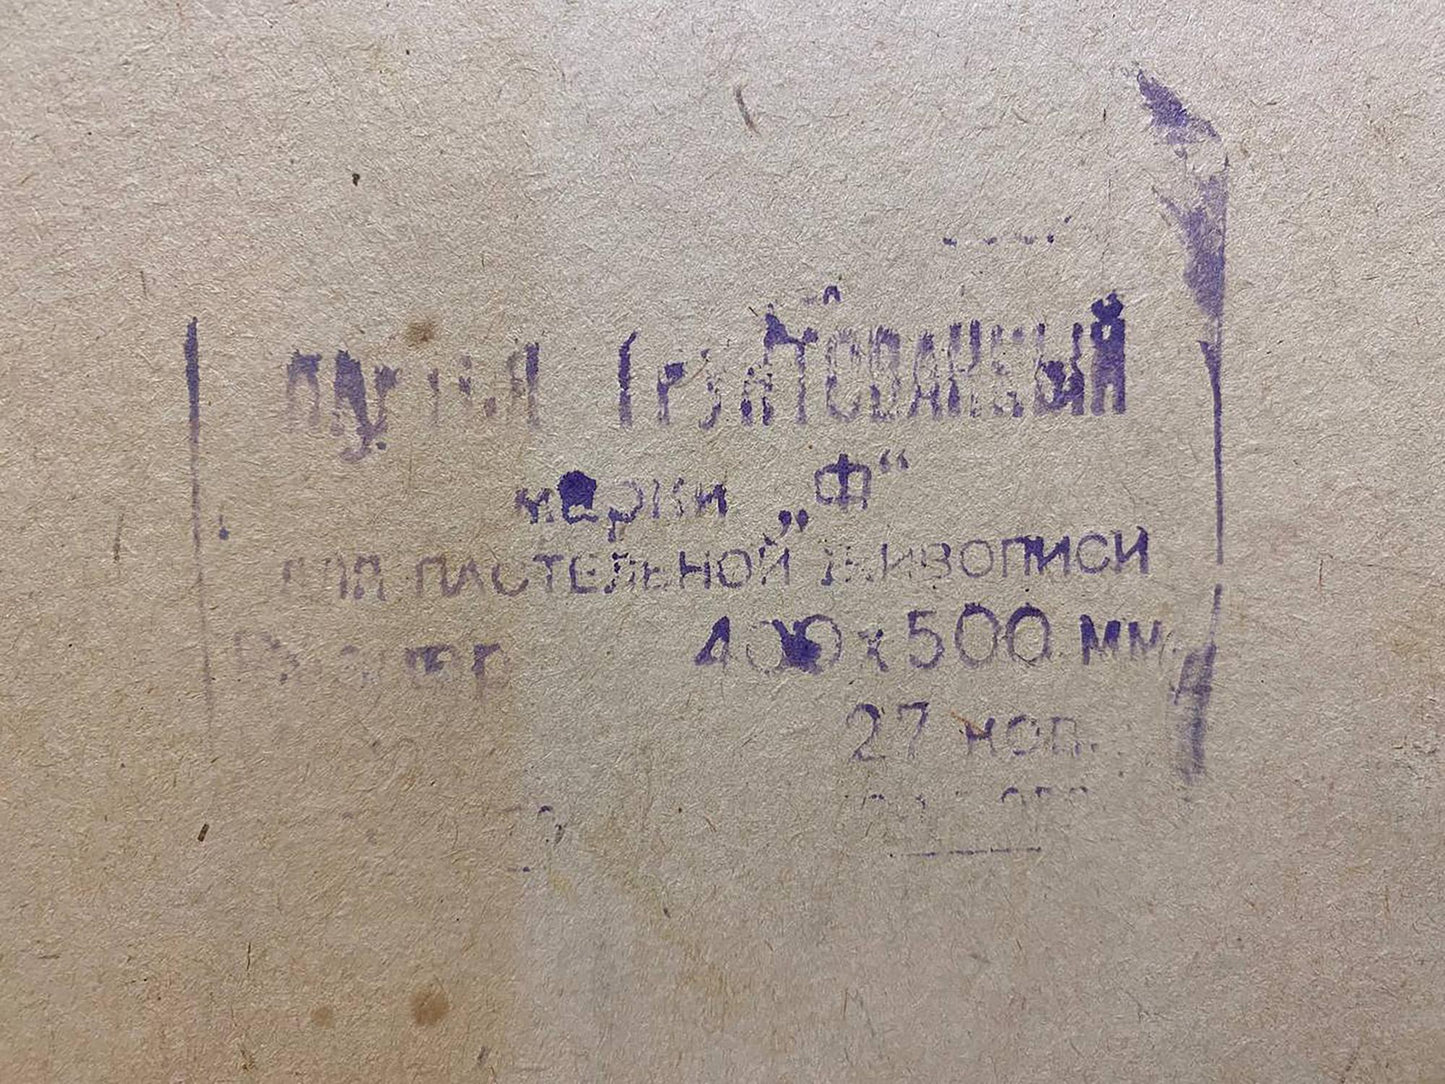 Грунтованный
марки „Ф“
для ПАСТЕЛЬНОЙ ЖИВОПИСИ
Размер 400х500 мм
27 коп.